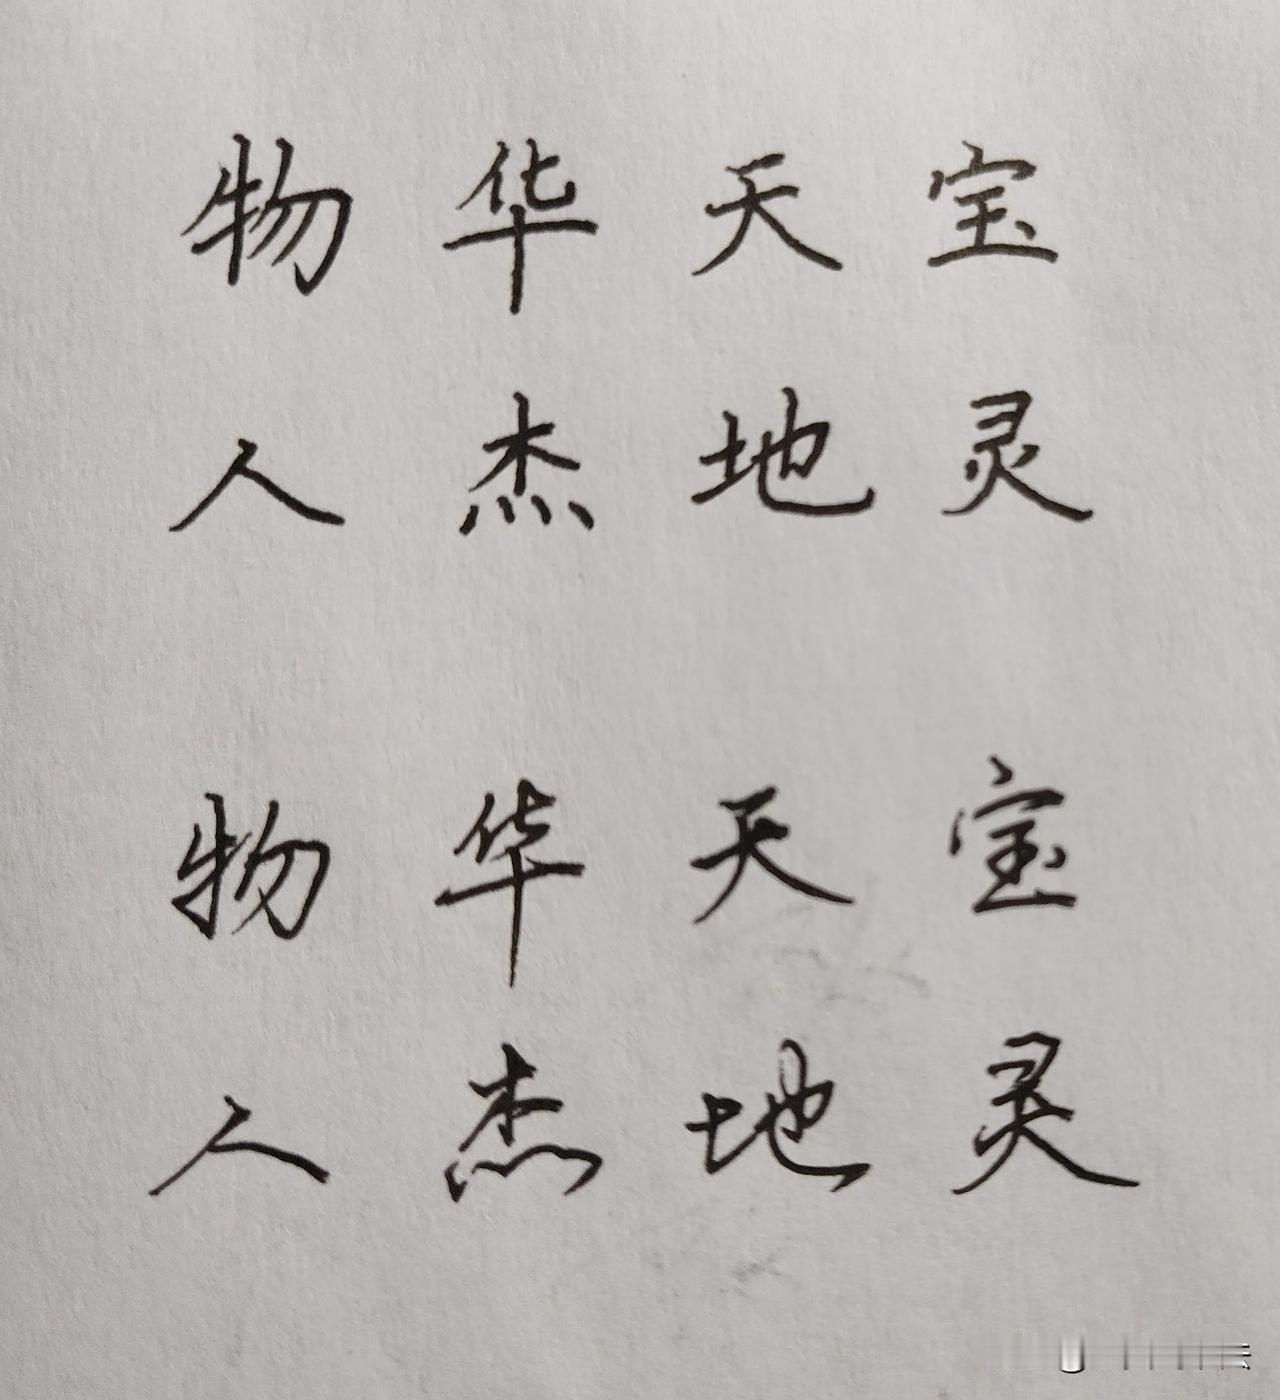 物华天宝
人杰地灵
物华天宝
人杰地灵